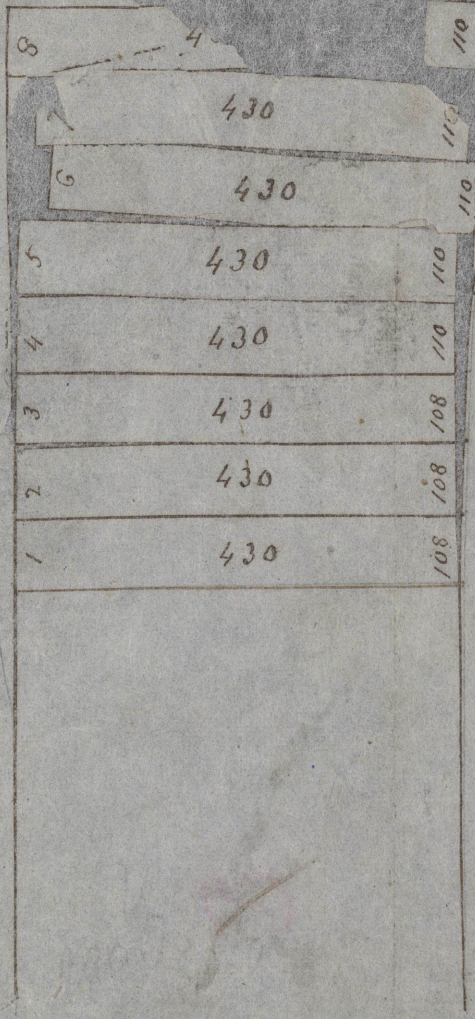 8 4 110
7 430 110
6 430 110
5 430 110
4 430 110
3 430 108
2 430 108
1 430 108